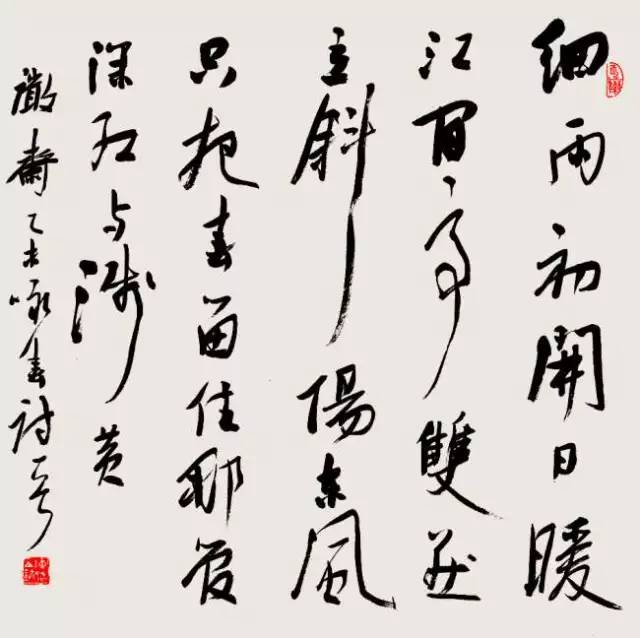 細雨初開日暖
江間亭雙燕
立斜陽東風
只把春留住那管
深紅与淺黄
齋乙未咏春詩一首